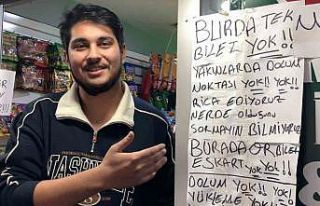 BURDA TEK
BİLET YOK!!
YAKINLARDA DOLUM
NOKTASI YOK!! YOK!!
RİCA EDİYORUZ
NERDE OLDUĞUNU
SORMAYIN BİLMİYORUZ
BURADA
ESKART YOK!!
DOLUM YOK!! YOK
YÜKLEME YOK!